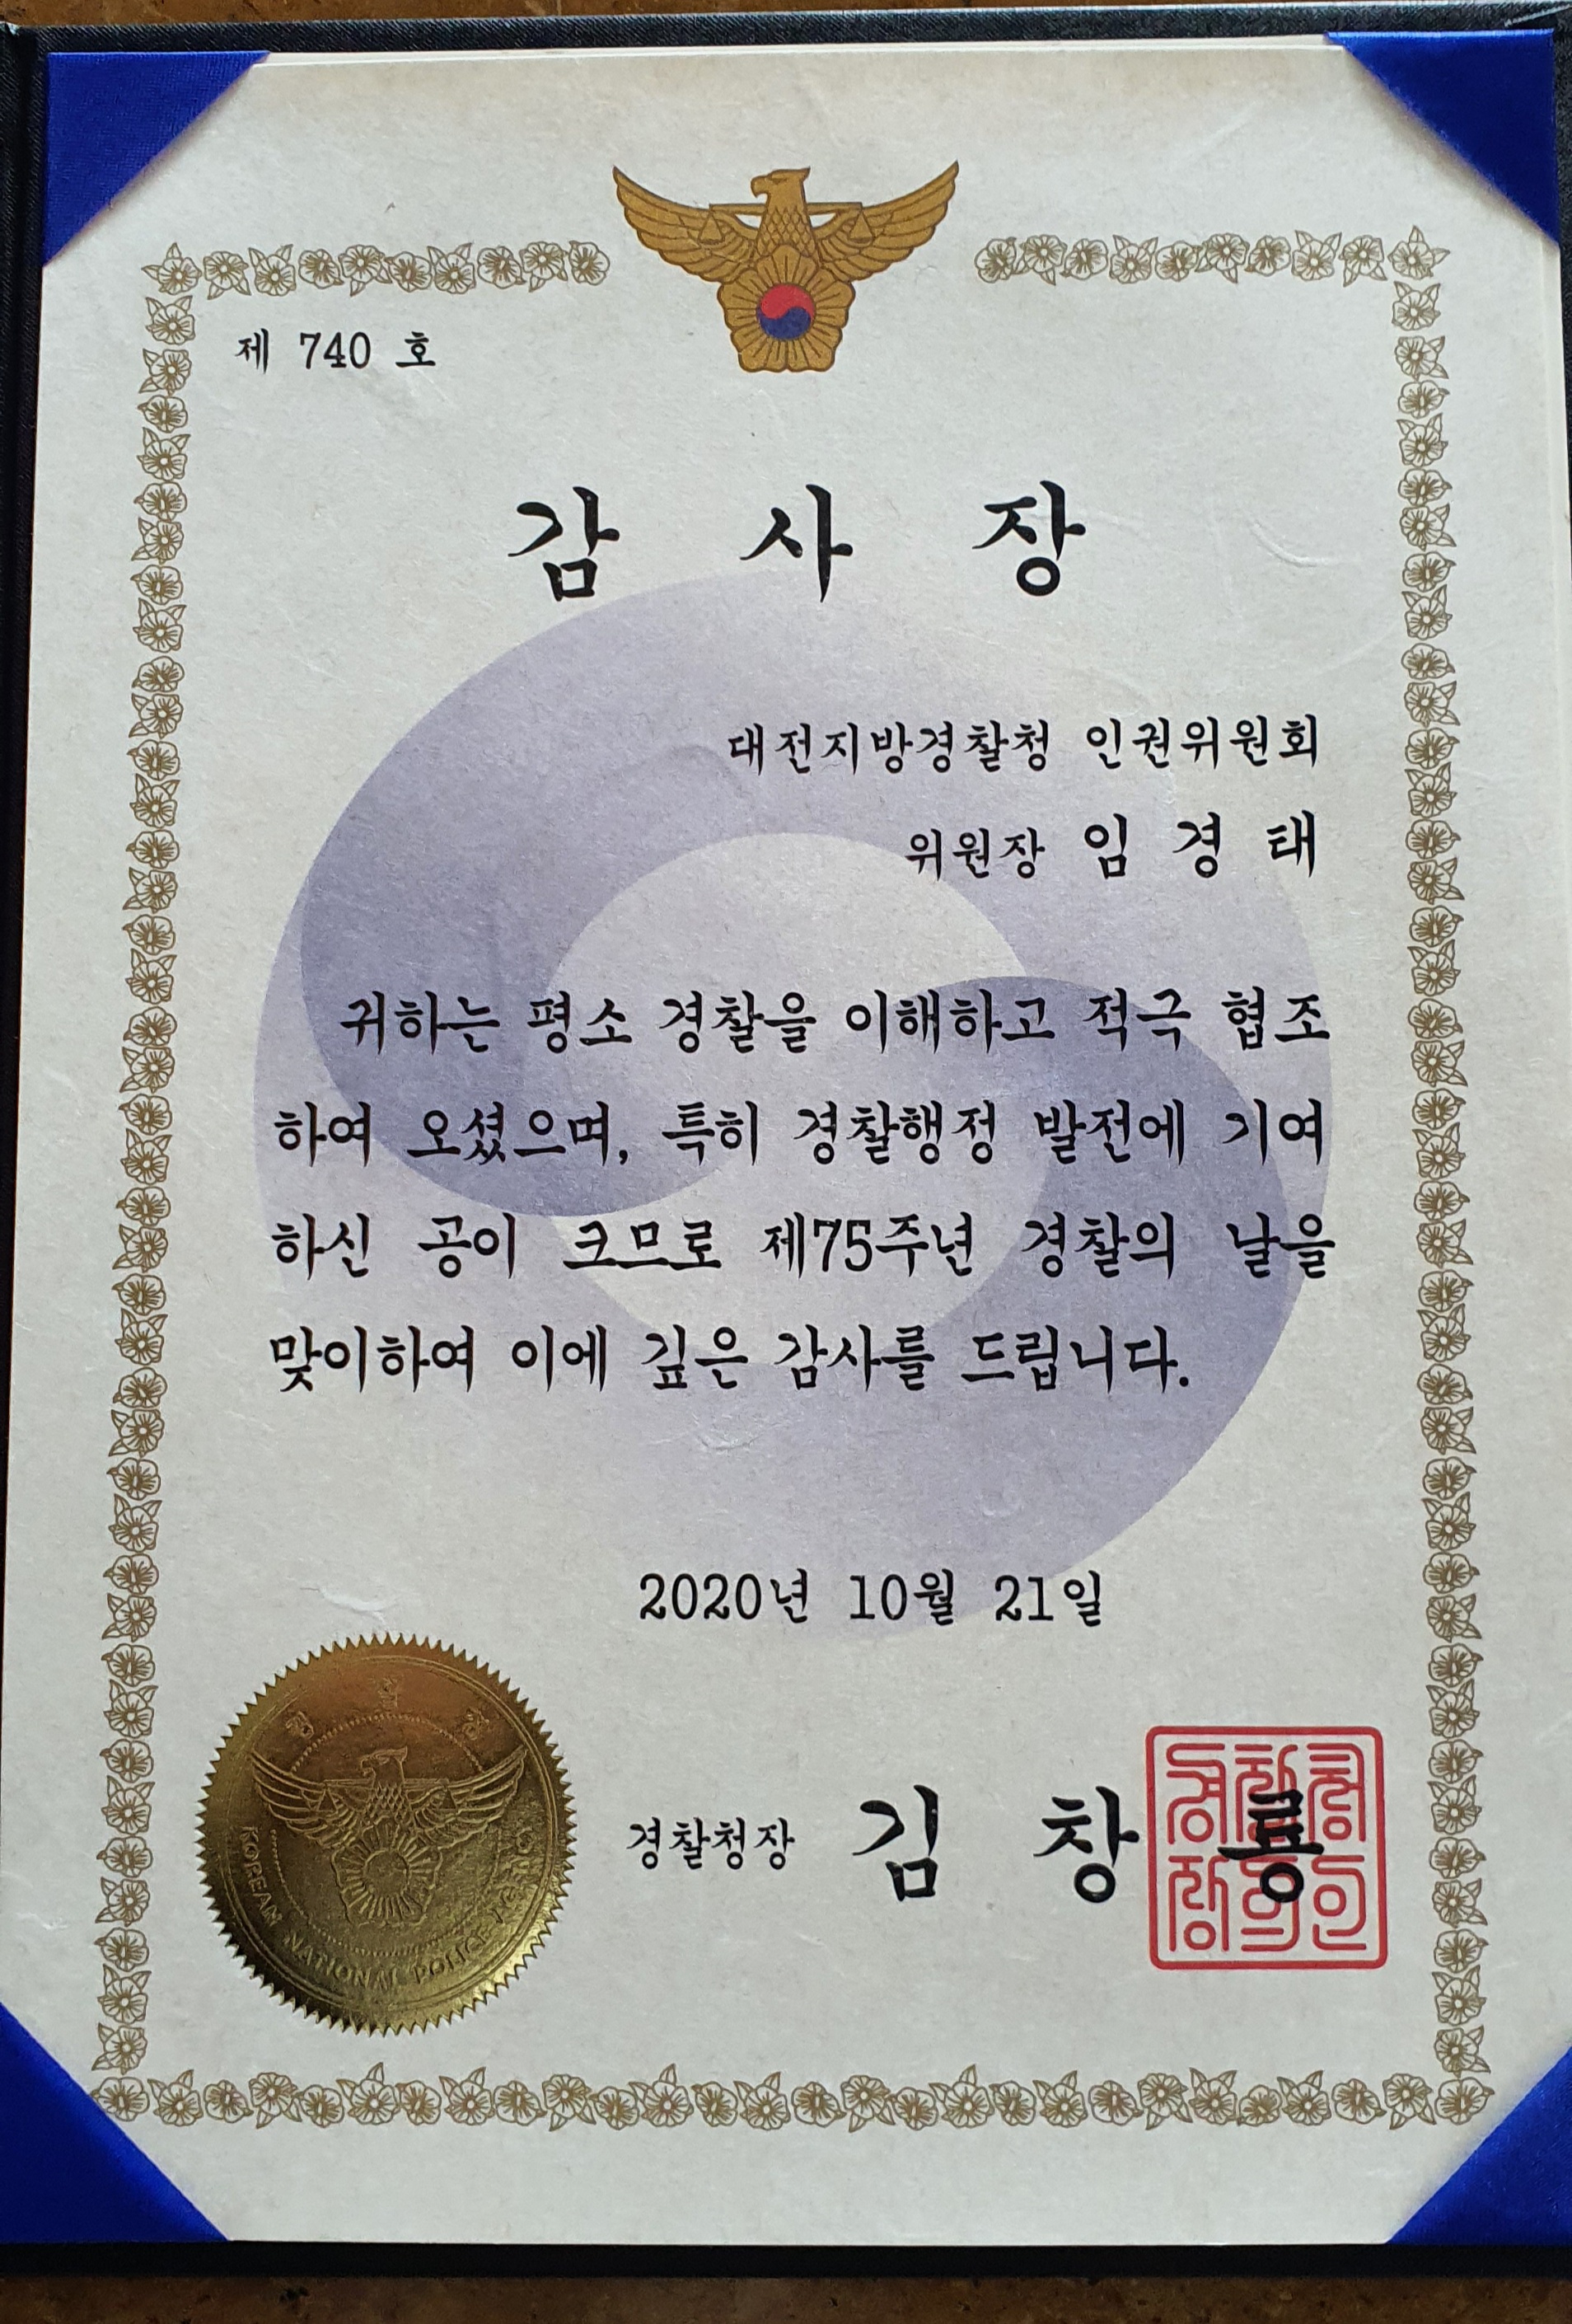 제 740 호
감 사 장
대전지방경찰청 인권위원회
위원장 임 경 태
귀하는 평소 경찰을 이해하고 적극 협조
하여 오셨으며, 특히 경찰행정 발전에 기여
하신 공이 크므로 제75주년 경찰의 날을
맞이하여 이에 깊은 감사를 드립니다.
2020년 10월 21일
경찰청장 김 창 룡
경찰청
장의인
경찰청
KOREAN NATIONAL POLICE AGENCY